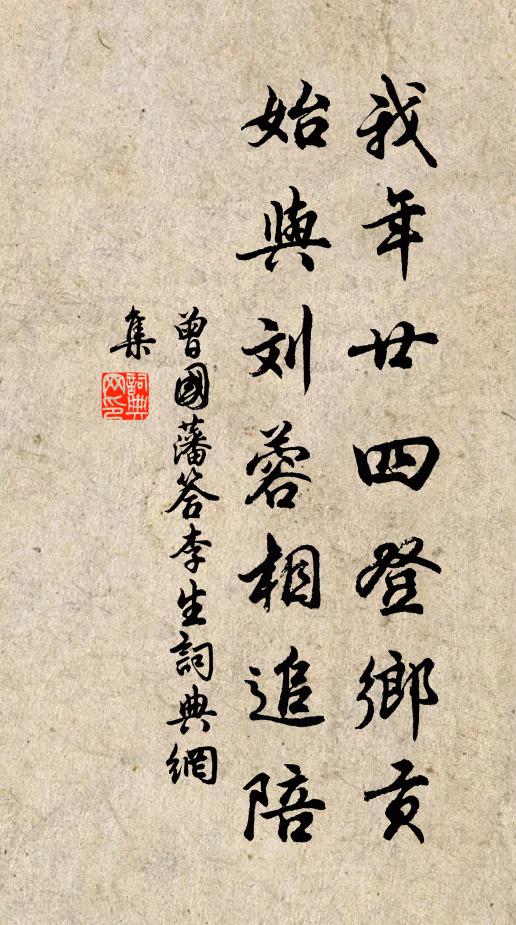 我年廿四登鄉貢
始與刘蓉相追陪
曾國藩答李生詞典網
集
詞典
网印